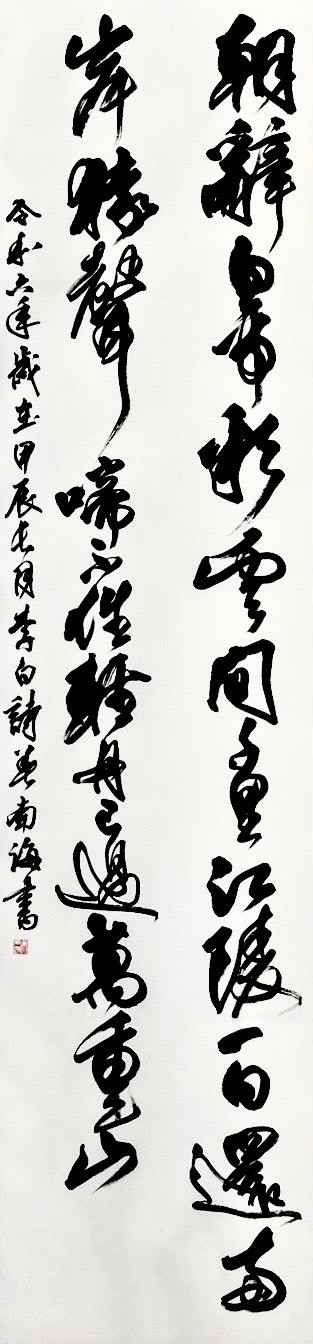 朝辭白帝彩雲間千里江陵一日還两
岸猿聲啼不住輕舟已過萬重山
令和六年歳在甲辰七月李白詩 南海書